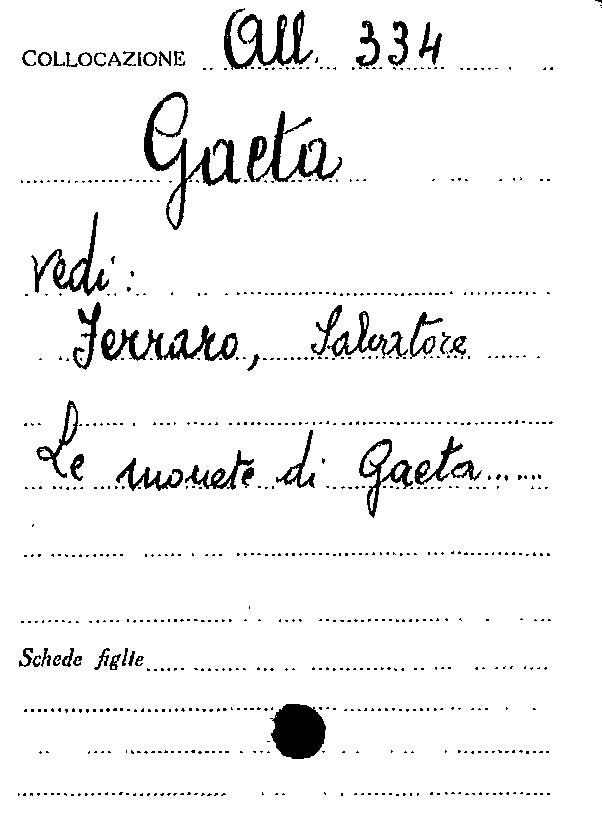 COLLOCAZIONE All. 334
Gaeta
vedi:
Ferraro, Salvatore
Le monete di Gaeta......
Schede figlie